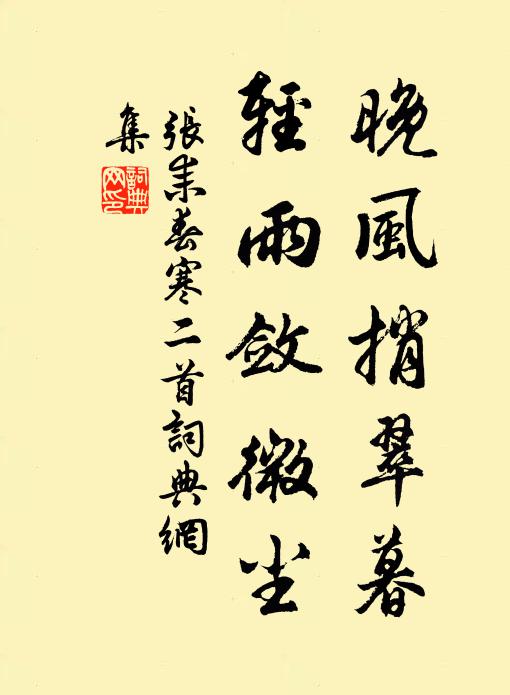 晚風捎翠暮
輕雨斂微尘
張耒春寒二首詞典網
集
詞典網印